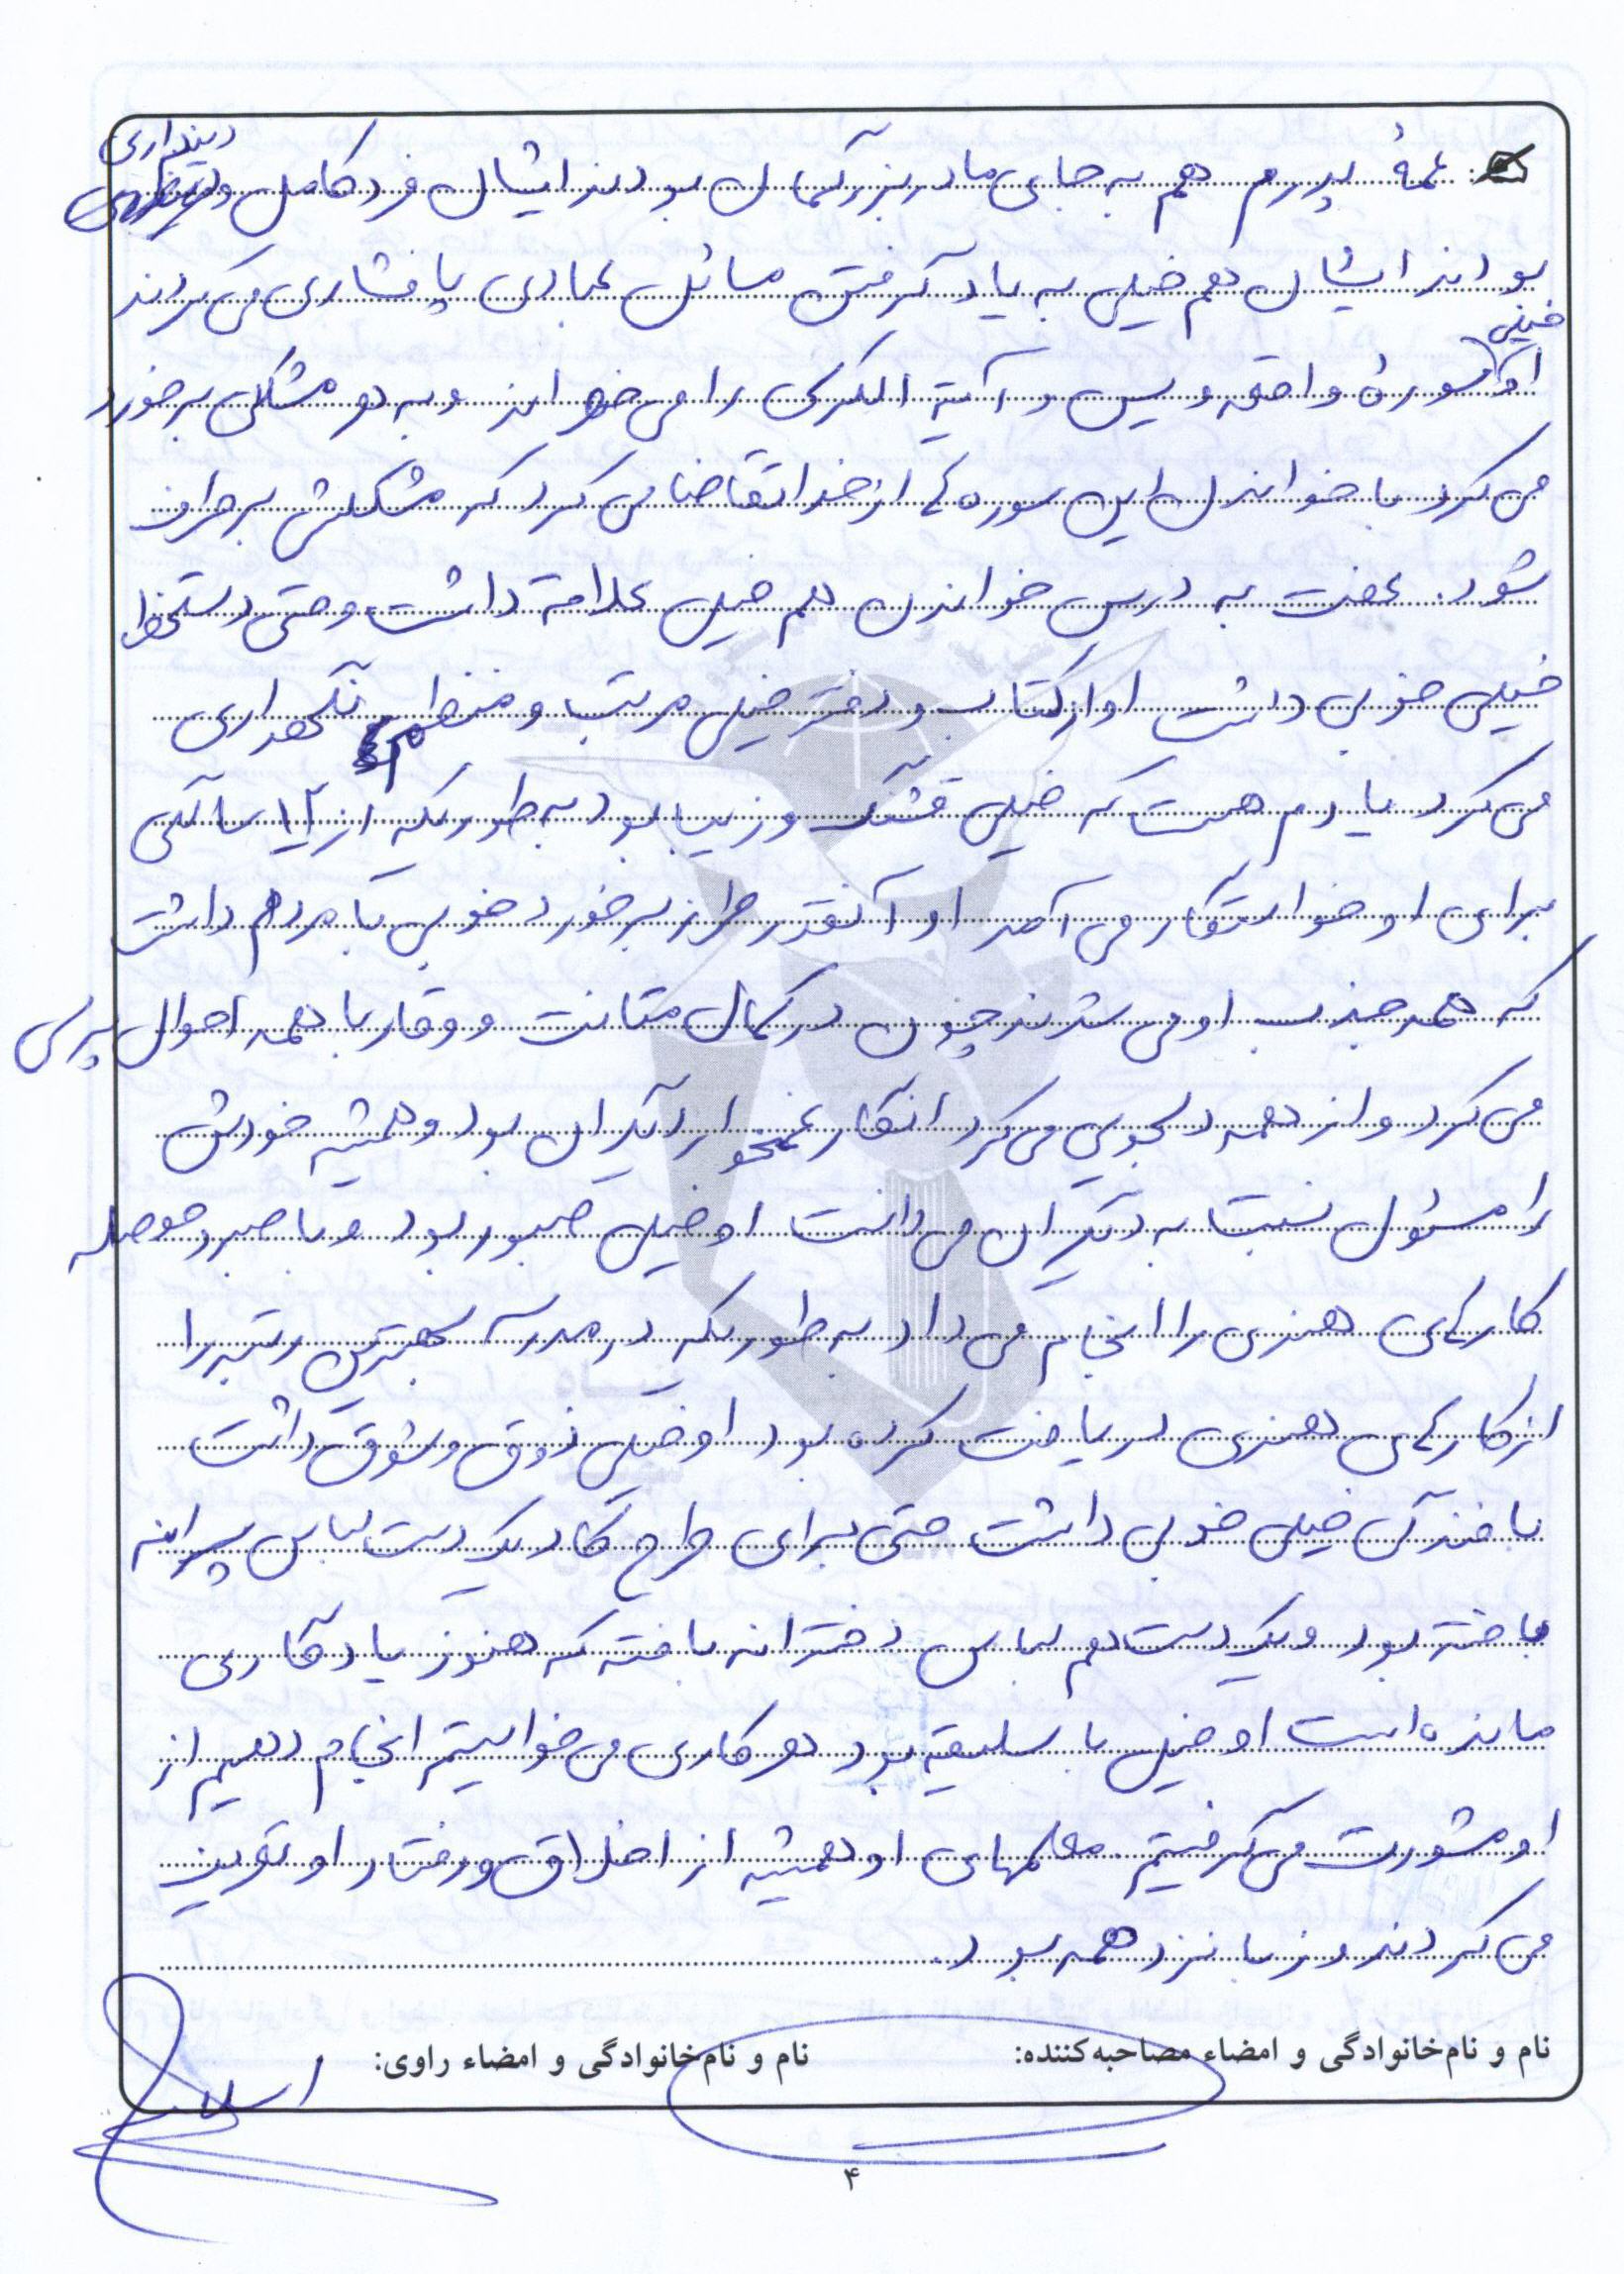 عمهٔ پدرم هم به جای مادربزرگمان بودند ایشان فرد کامل و دینداری
بودند ایشان هم خیلی به یاد گرفتن مسائل عبادی پافشاری می‌کردند
او خیلی سورهٔ واقعه و یس و آیة الکرسی را می‌خواند و به هر مشکلی برخورد
می‌کرد با خواندن این سوره‌ها از خدا تقاضا می‌کرد که مشکلش برطرف
شود. عفت به درس خواندن هم خیلی علاقه داشت و حتی دستخط
خیلی خوبی داشت او از کتاب و دفتر خیلی مرتب و منظم نگهداری
می‌کرد یادم هست که خیلی قشنگ و زیبا بود به طوریکه از ۱۲ سالگی
برای او خواستگار می‌آمد او آنقدر طرز برخورد خوبی با مردم داشت
که همه جذب او می‌شدند چون در کمال متانت و وقار با همه احوال پرسی
می‌کرد و از همه دلجویی می‌کرد انگار غمخوار دیگران بود و همیشه خودش
را مسئول نسبت به دیگران می‌دانست او خیلی صبور بود و با صبر و حوصله
کارهای هنری را انجام می‌داد به طوریکه در مدرسه بهترین رتبه را
از کارهای هنری دریافت کرده بود او خیلی ذوق و شوق داشت
بافندگی خیلی خوبی داشت حتی برای طرح کاد یک دست لباس پسرانه
بافته بود و یک دست هم لباس دخترانه بافته که هنوز یادگاری
مانده است او خیلی با سلیقه بود هر کاری می‌خواستیم انجام دهیم از
او مشورت می‌گرفتیم. معلمهای او همیشه از اخلاق و رفتار او تعریف
می‌کردند و زبانزد همه بود.
نام و نام‌خانوادگی و امضاء مصاحبه‌کننده: نام و نام‌خانوادگی و امضاء راوی:
۴